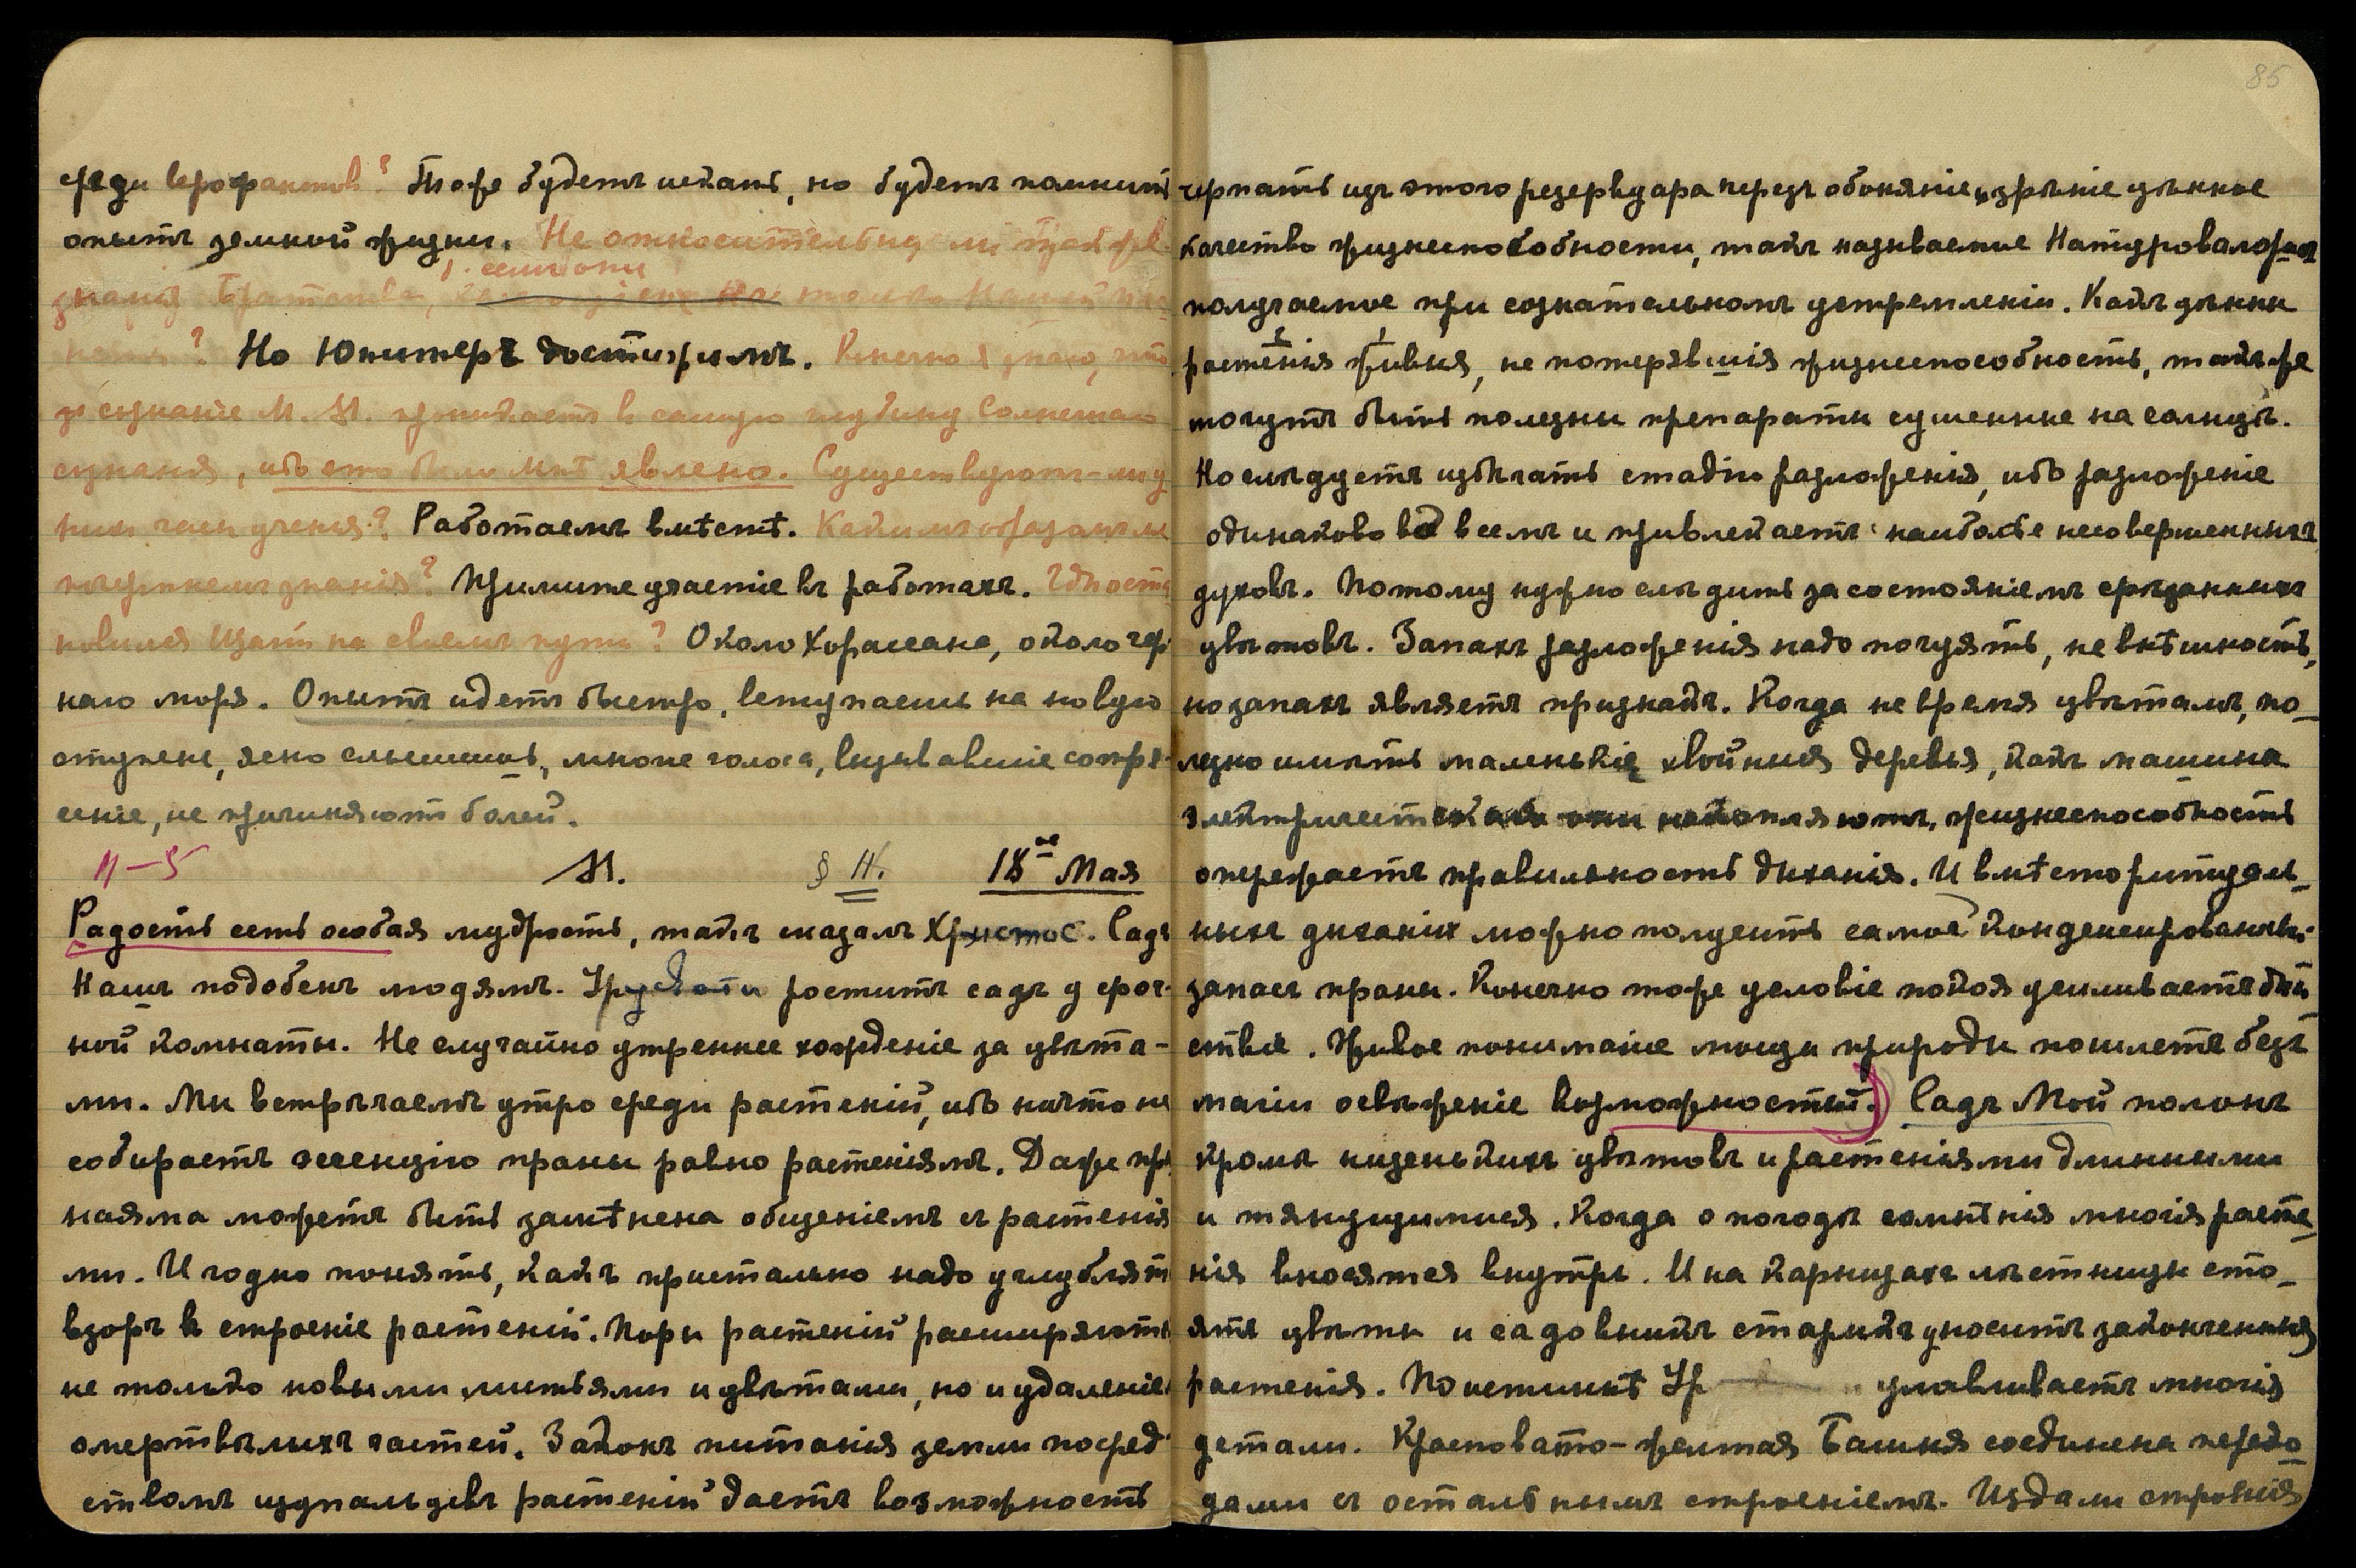 среди иерофантов? Тоже будетъ искать, но будетъ помнить
опытъ земной жизни. Не относительны ли также
1. если они
знанія Братства,
? Но Юпитеръ достижимъ. Конечно я знаю, что
сознаніе М. М. проникаетъ в самую глубину Солнечнаго
сознанія, ибо это было мнѣ явлено. Существуютъ-ли у
ученія? Работаемъ вмѣстѣ. Какимъ образомъ мы
знанія? Примите участіе въ работахъ. Гдѣ оста
новился на своемъ пути? Около Хорассана, около чер
наго моря. Опытъ идетъ быстро, вступаешь на новую
ступень, ясно слышишь, многие голоса, вызывавшіе сотря-
сеніе, не причиняютъ болей.
11-5 М. § 11. 18ое Мая
Радость есть особая мудрость, такъ сказалъ Христос. Садъ
Нашъ подобенъ людямъ. Урусвати раститъ садъ у сроч-
ной комнаты. Не случайно утреннее хожденіе за цвѣта-
ми. Мы встрѣчаемъ утро среди растеній, ибо ничто не
собираетъ эссенцію праны равно растеніямъ. Даже пра
наяма можетъ быть замѣнена общеніемъ съ растенія
ми. И годно понять, какъ пристально надо углублять
взоръ в строеніе растеній. Поры растеній расширяются
не только новыми листьями и цвѣтами, но и удаленіемъ
омертвѣлыхъ частей. Законъ питанія земли посред-
ствомъ щупальцевъ растеній даетъ возможность
85
черпать изъ этого резервуара черезъ обоняніе и зрѣніе цѣнное
качество жизнеспособности, такъ называемое Натуроваложъ
получаемое при сознательномъ устремленіи. Какъ цѣнны
растенія живыя, не потерявшія жизнеспособность, такъ же
могутъ быть полезны препараты сушенные на солнцѣ.
Но слѣдуетъ избѣгать стадіи разложенія, ибо разложеніе
одинаково во всемъ и привлекаетъ наиболѣе несовершенныхъ
духовъ. Потому нужно слѣдить за состояніемъ срѣзанныхъ
цвѣтовъ. Запахъ разложенія надо почуять, не внѣшность,
но запахъ являетъ признакъ. Когда не время цвѣтамъ, по-
лезно имѣть маленькія хвойныя деревья, какъ машина
электрическая они накопляютъ, жизнеспособность
опережаетъ правильность дыханія. И вмѣсто ритуаль-
ныхъ дыханій можно получить самое конденсированный
запасъ праны. Конечно тоже условіе покоя усиливаетъ дѣй
ствіе. Живое пониманіе мощи природы пошлетъ безъ
магіи освѣженіе возможностей. Садъ Мой полонъ
кромѣ низенькихъ цвѣтовъ и растеніями длинными
и тянущимися. Когда о погодѣ сомнѣнія многія расте-
нія вносятся внутрь. И на карнизахъ лѣстницы сто-
ятъ цвѣты и садовникъ старикъ уноситъ законченныя
растенія. Поистинѣ Ур улавливаетъ многія
детали. Красновато-желтая Башня соединена перехо-
дами съ остальнымъ строеніемъ. Издали строенія